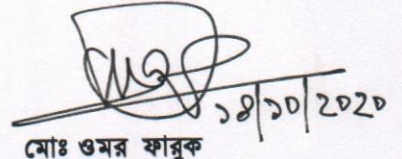 ১৪/১০/২০২০
মোঃ ওমর ফারুক